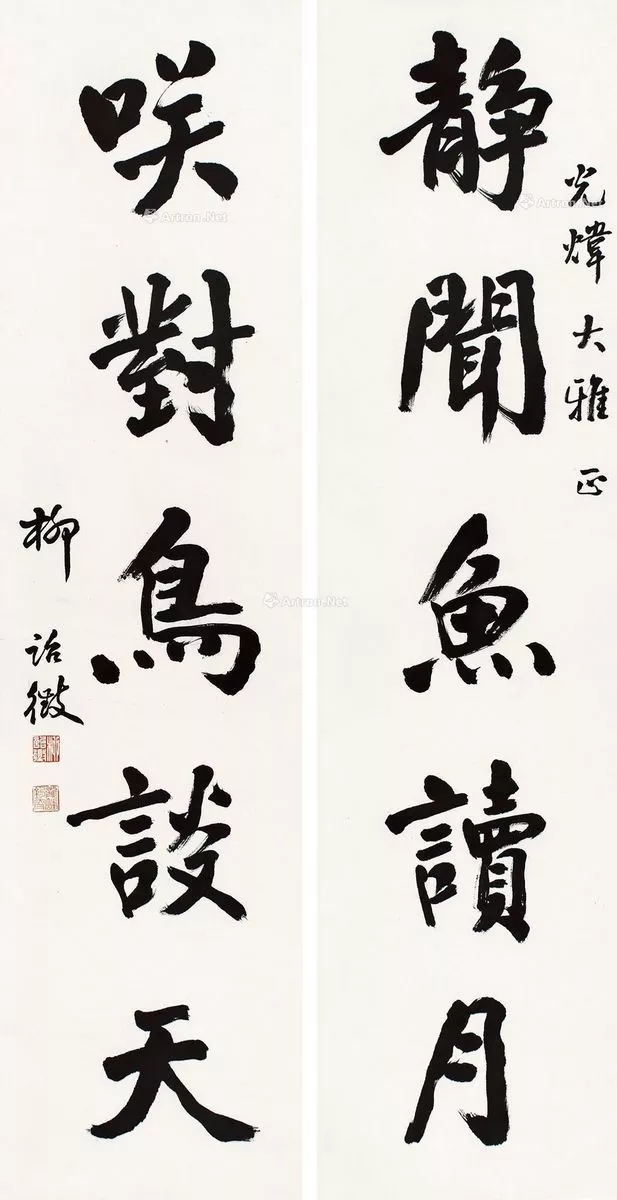 光煒大雅正
静聞魚讀月
咲對鳥談天
柳詒徵
Artron.Net
Artron.Net
Artron.Net